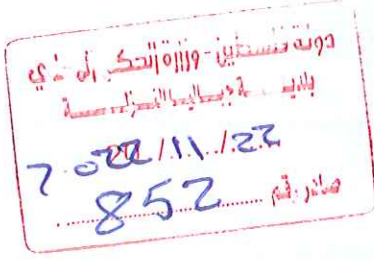 دولة فلسطين - وزارة الحكم المحلي
بلدية جباليا النزلة
2022/11/22
صادر رقم 852